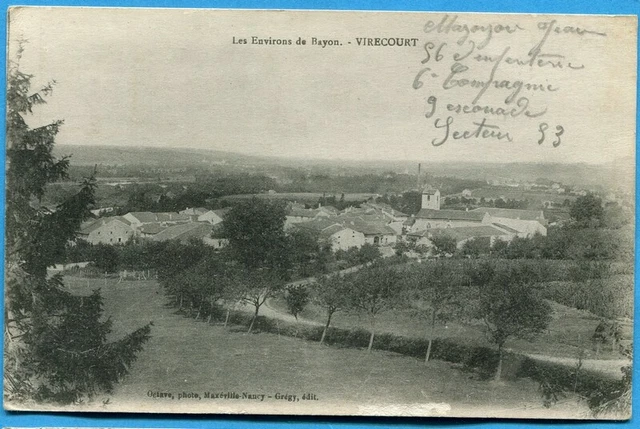 Les Environs de Bayon. - VIRECOURT
Mazoyer Jean
56 d'infanterie
6e Compagnie
9 escouade
Secteur 93
Octave, photo, Maxéville-Nancy - Grégy, édit.